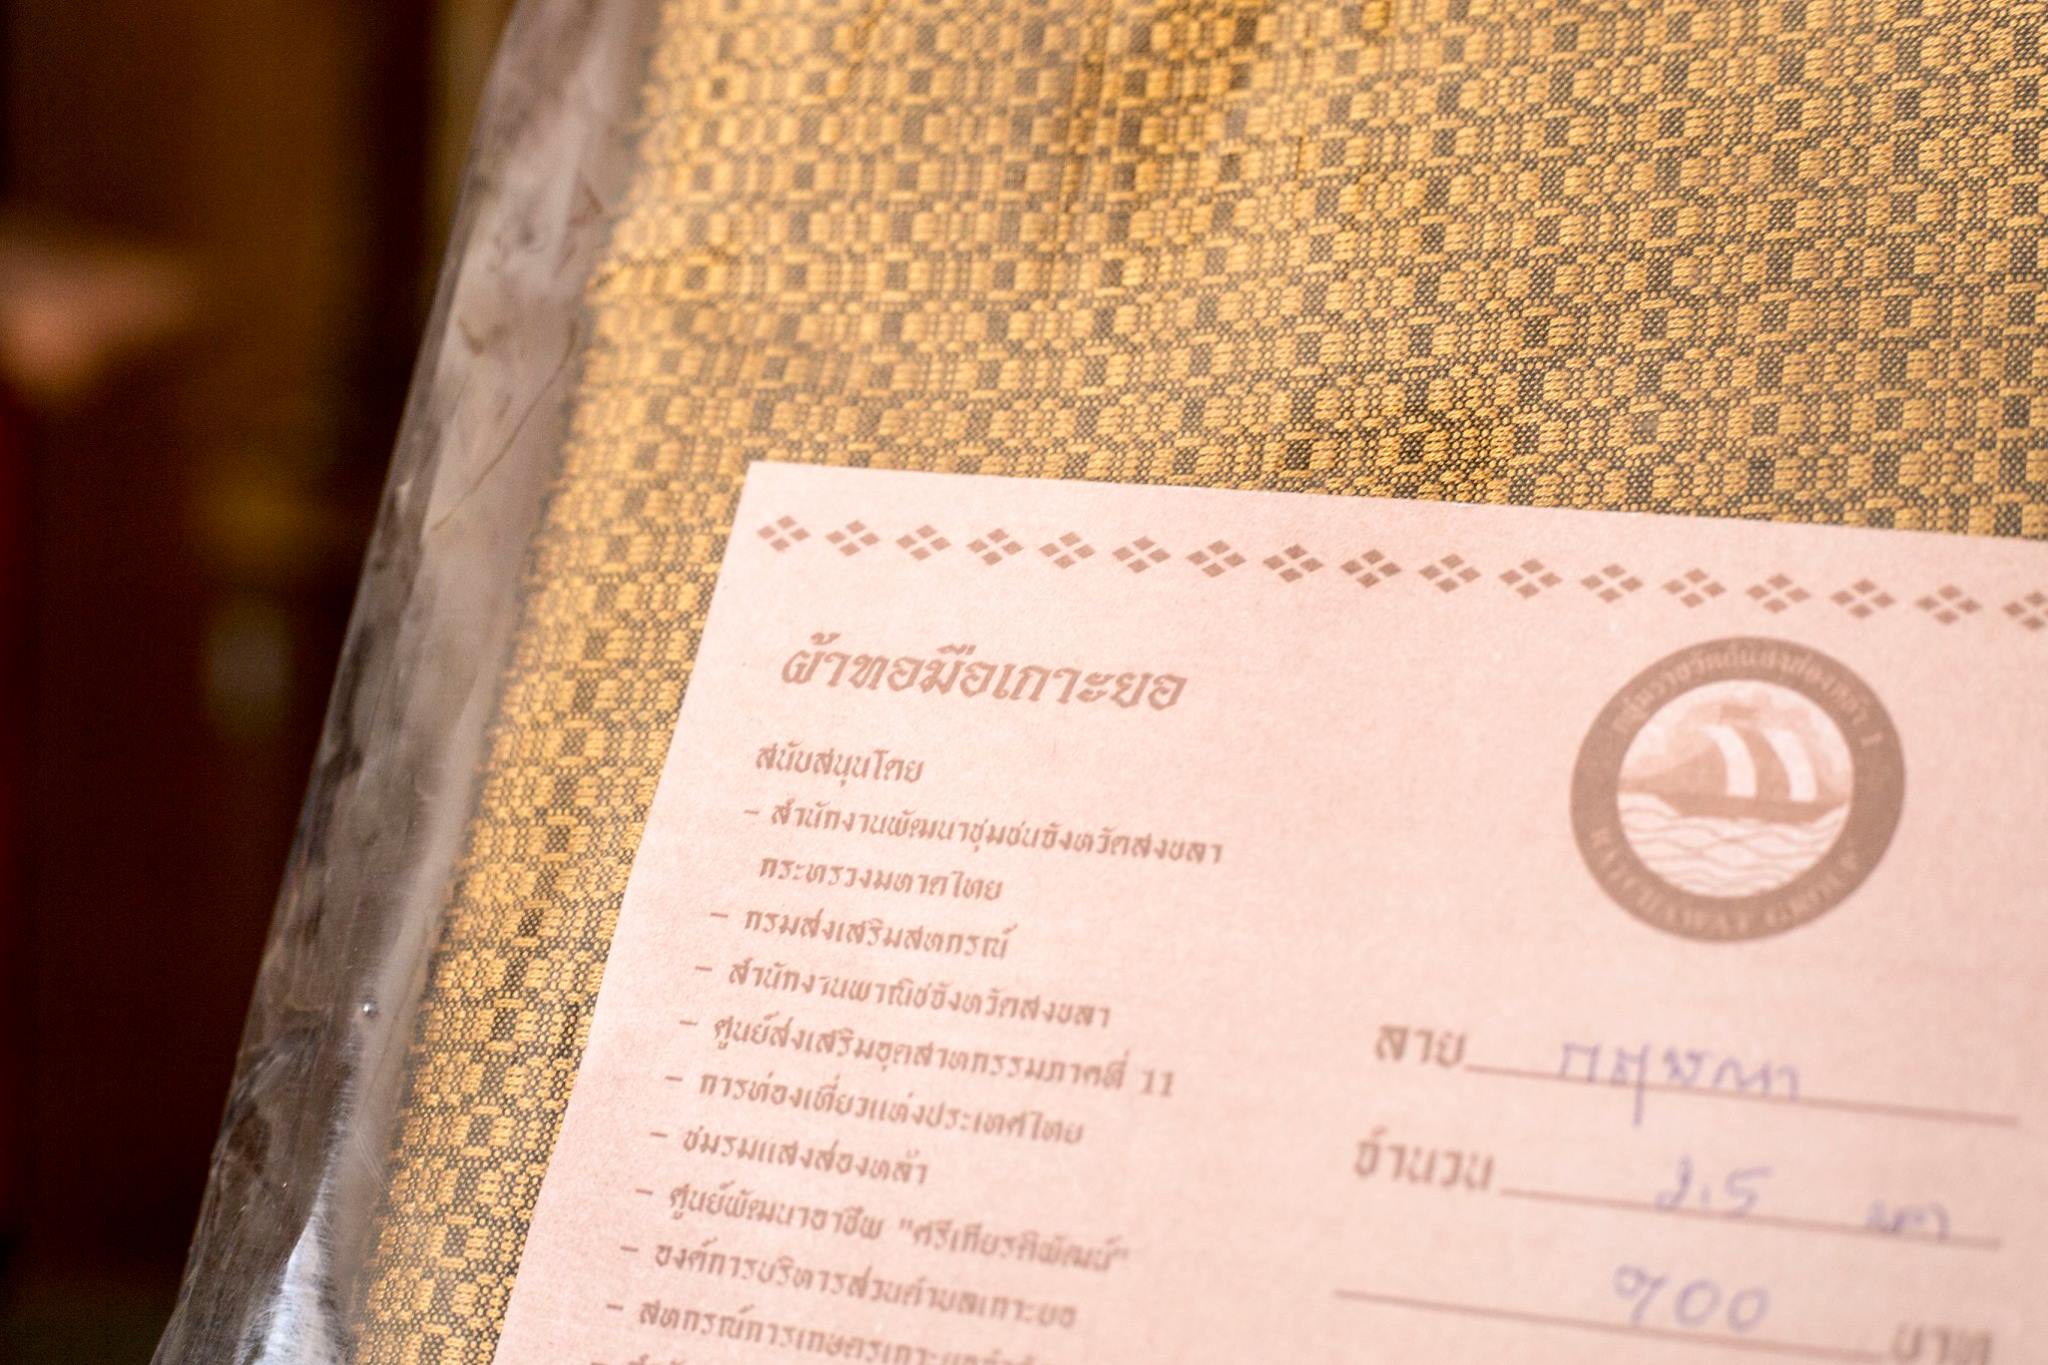 ผ้าทอมือเกาะยอ
สนับสนุนโดย
- สำนักงานพัฒนาชุมชนจังหวัดสงขลา
กระทรวงมหาดไทย
- กรมส่งเสริมสหกรณ์
- สำนักงานพาณิชจังหวัดสงขลา
- ศูนย์ส่งเสริมอุตสาหกรรมภาคที่ 11
- การท่องเที่ยวแห่งประเทศไทย
- ชมรมแสงส่องหล้า
- ศูนย์พัฒนาอาชีพ "ศรีเกียรติพัฒน์"
- องค์การบริหารส่วนตำบลเกาะยอ
- สหกรณ์การเกษตรเกาะยอ
กลุ่มราชวัตถ์แสงส่องหล้า 1
RATCHAWAT GROUP
ลาย
จำนวน 2.5 หลา
700 บาท